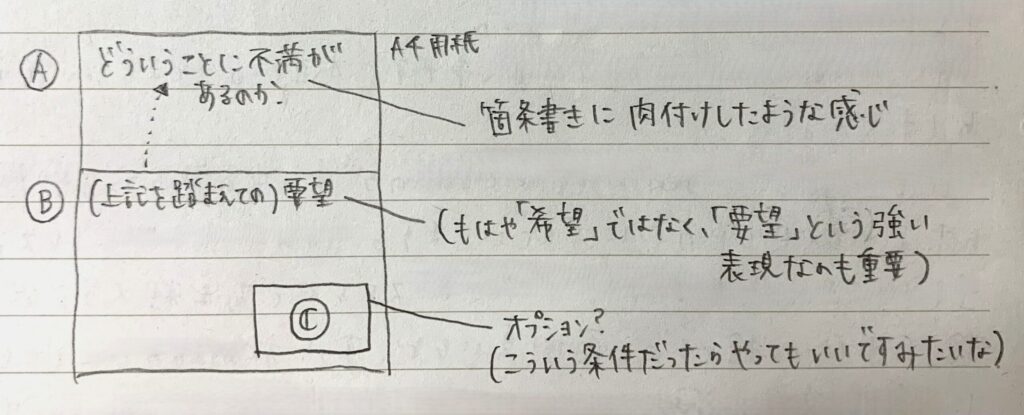 Ⓐ どういうことに不満が
あるのか
A4用紙
箇条書きに肉付けしたような感じ
Ⓑ (上記を踏まえての)要望
(もはや「希望」ではなく、「要望」という強い
表現なのも重要)
Ⓒ
オプション?
(こういう条件だったらやってもいいですみたいな)